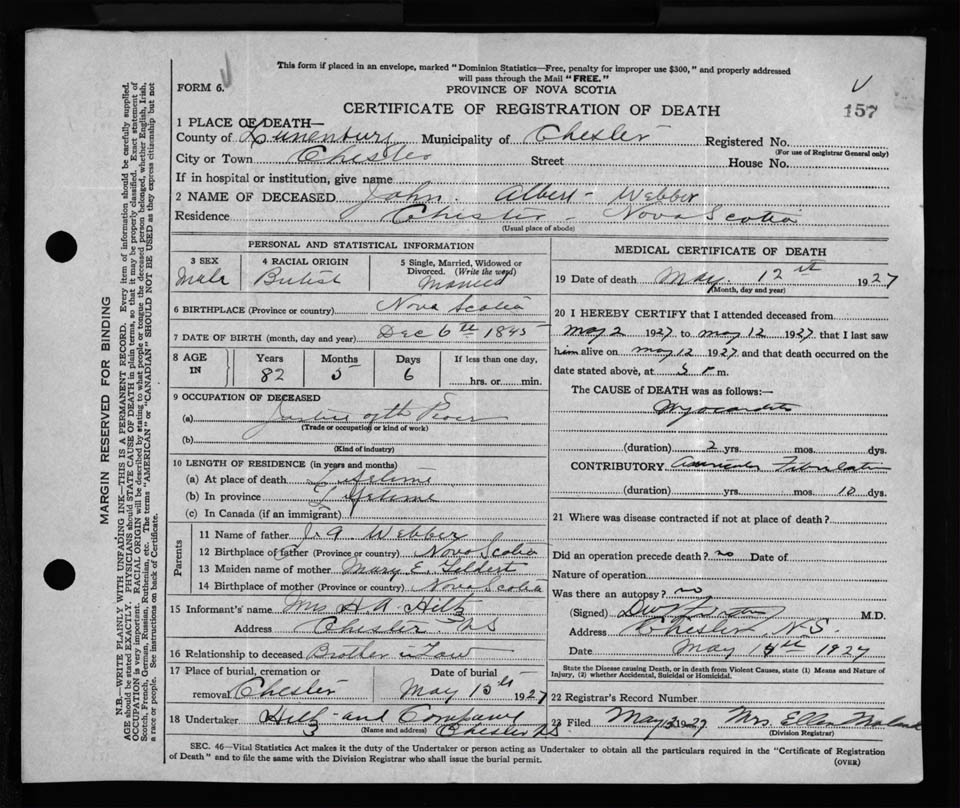 This form if placed in an envelope, marked "Dominion Statistics—Free, penalty for improper use $300," and properly addressed
will pass through the Mail "FREE."
FORM 6.
PROVINCE OF NOVA SCOTIA
157
CERTIFICATE OF REGISTRATION OF DEATH
1 PLACE OF DEATH—
County of Lunenburg Municipality of Chester Registered No.
(For use of Registrar General only)
City or Town Chester Street House No.
If in hospital or institution, give name
2 NAME OF DECEASED John Albert Webber
Residence Chester Nova Scotia
(Usual place of abode)
PERSONAL AND STATISTICAL INFORMATION
3 SEX 4 RACIAL ORIGIN 5 Single, Married, Widowed or
Divorced. (Write the word)
Male British Married
6 BIRTHPLACE (Province or country) Nova Scotia
7 DATE OF BIRTH (month, day and year) Dec 6th 1845
8 AGE IN Years Months Days If less than one day,
82 5 6 hrs. or min.
9 OCCUPATION OF DECEASED
(a) Justice of the Peace
(Trade or occupation or kind of work)
(b)
(Kind of industry)
10 LENGTH OF RESIDENCE (in years and months)
(a) At place of death Lifetime
(b) In province Lifetime
(c) In Canada (if an immigrant)
Parents
11 Name of father J. A Webber
12 Birthplace of father (Province or country) Nova Scotia
13 Maiden name of mother Mary E.
14 Birthplace of mother (Province or country) Nova Scotia
15 Informant's name Mrs H A Hiltz
Address Chester NS
16 Relationship to deceased Brother in Law
17 Place of burial, cremation or Date of burial
removal Chester May 15th 1927
18 Undertaker Hiltz and Company
(Name and address) Chester NS
MEDICAL CERTIFICATE OF DEATH
19 Date of death May 12th 1927
(Month, day and year)
20 I HEREBY CERTIFY that I attended deceased from
May 2 1927 to May 12 1927 that I last saw
him alive on May 12 1927 and that death occurred on the
date stated above, at 5 P m.
The CAUSE of DEATH was as follows:
Myocarditis
(duration) 2 yrs. mos. dys.
CONTRIBUTORY Auricular Fibrillation
(duration) yrs. mos. 10 dys.
21 Where was disease contracted if not at place of death?
Did an operation precede death? no Date of
Nature of operation
Was there an autopsy? no
(Signed) M.D.
Address Chester N.S.
Date May 14th 1927
State the Disease causing Death, or in death from Violent Causes, state (1) Means and Nature of
Injury, (2) whether Accidental, Suicidal or Homicidal.
22 Registrar's Record Number
23 Filed May 1927 Mrs. Ella
(Division Registrar)
SEC. 46—Vital Statistics Act makes it the duty of the Undertaker or person acting as Undertaker to obtain all the particulars required in the "Certificate of Registration
of Death" and to file the same with the Division Registrar who shall issue the burial permit.
(OVER)
MARGIN RESERVED FOR BINDING
N.B.—WRITE PLAINLY WITH UNFADING INK—THIS IS A PERMANENT RECORD. Every item of information should be carefully supplied.
AGE should be stated EXACTLY. PHYSICIANS should STATE CAUSE OF DEATH in plain terms, so that it may be properly classified. Exact statement of
OCCUPATION is very important. RACIAL ORIGIN will be described by stating to what people or tongue the deceased person belonged, whether English, Irish,
Scotch, French, German, Russian, Ruthenian, etc. The terms "AMERICAN" or "CANADIAN" SHOULD NOT BE USED as they express citizenship but not
a race or people. See instructions on back of Certificate.